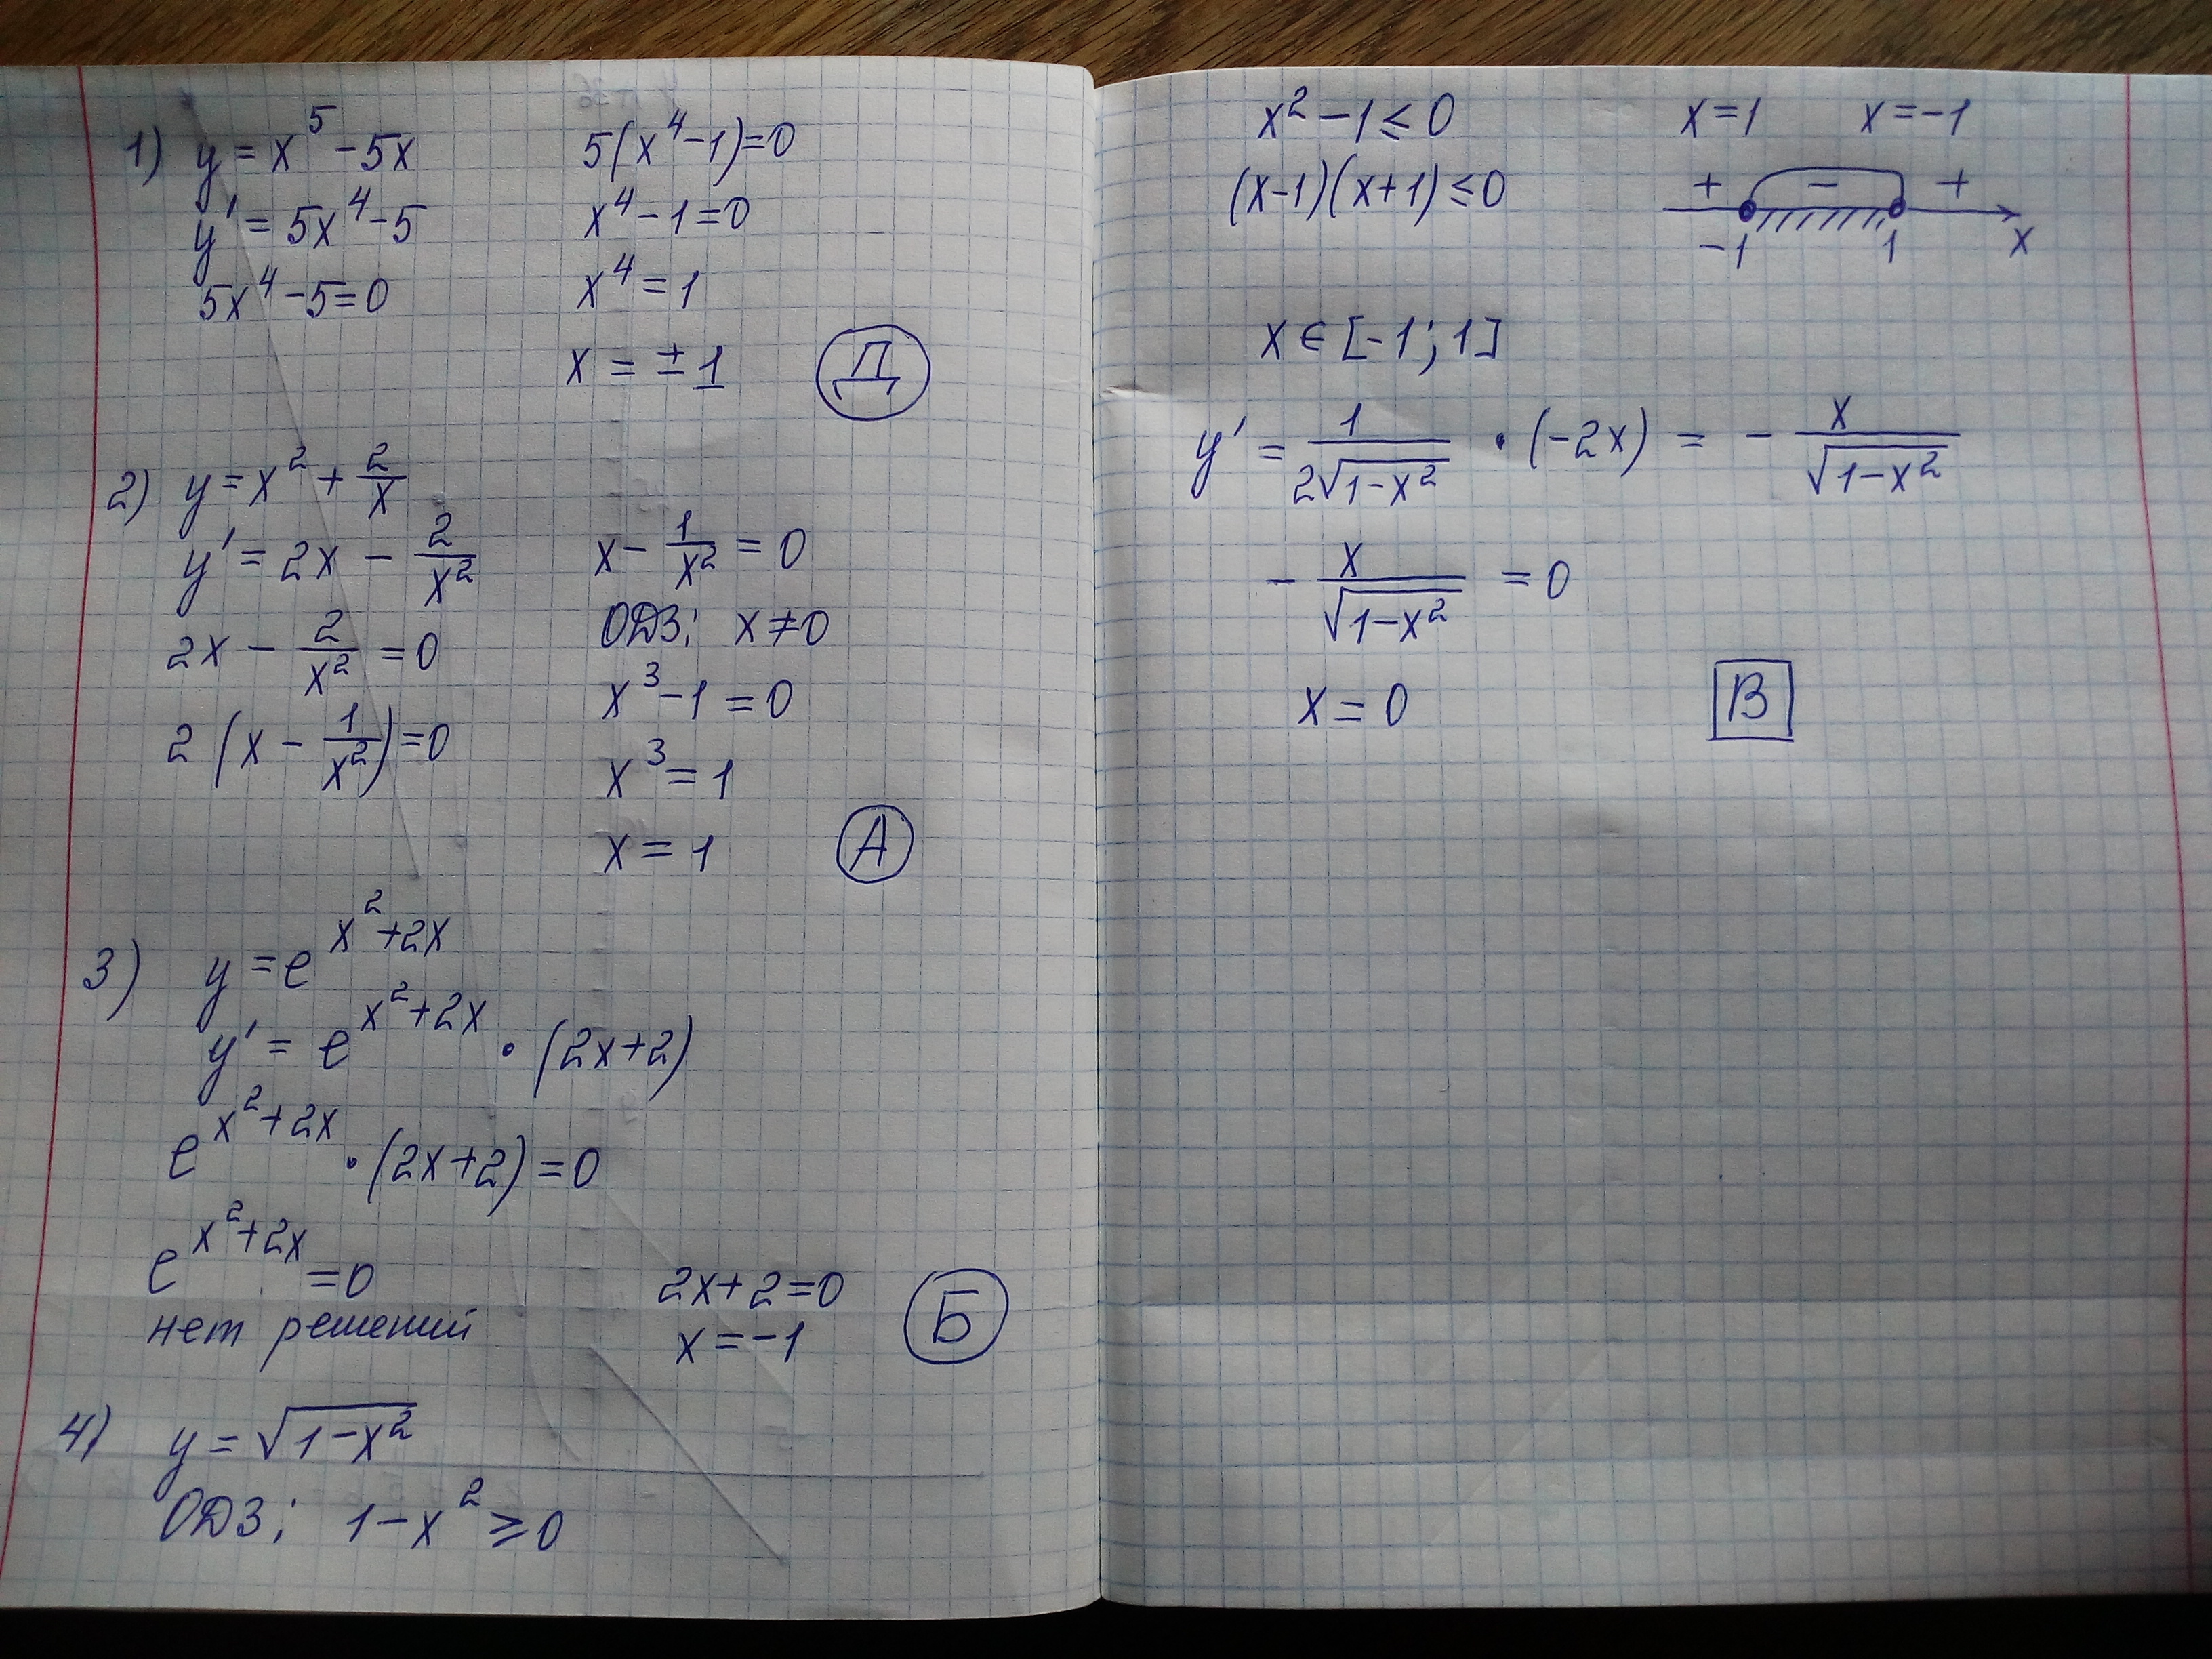 1) y = x⁵ - 5x
y' = 5x⁴ - 5
5x⁴ - 5 = 0
5(x⁴ - 1) = 0
x⁴ - 1 = 0
x⁴ = 1
x = ± 1
Д
2) y = x² + 2/x
y' = 2x - 2/x²
2x - 2/x² = 0
2(x - 1/x²) = 0
x - 1/x² = 0
ОДЗ: x ≠ 0
x³ - 1 = 0
x³ = 1
x = 1
А
3) y = e^(x²+2x)
y' = e^(x²+2x) · (2x+2)
e^(x²+2x) · (2x+2) = 0
e^(x²+2x) = 0
нет решений
2x+2=0
x = -1
Б
4) y = √(1-x²)
ОДЗ: 1 - x² ≥ 0
x² - 1 ≤ 0
(x-1)(x+1) ≤ 0
x=1 x=-1
+ - +
-1 1 x
x ∈ [-1; 1]
y' = 1/(2√(1-x²)) · (-2x) = - x/√(1-x²)
- x/√(1-x²) = 0
x = 0
В